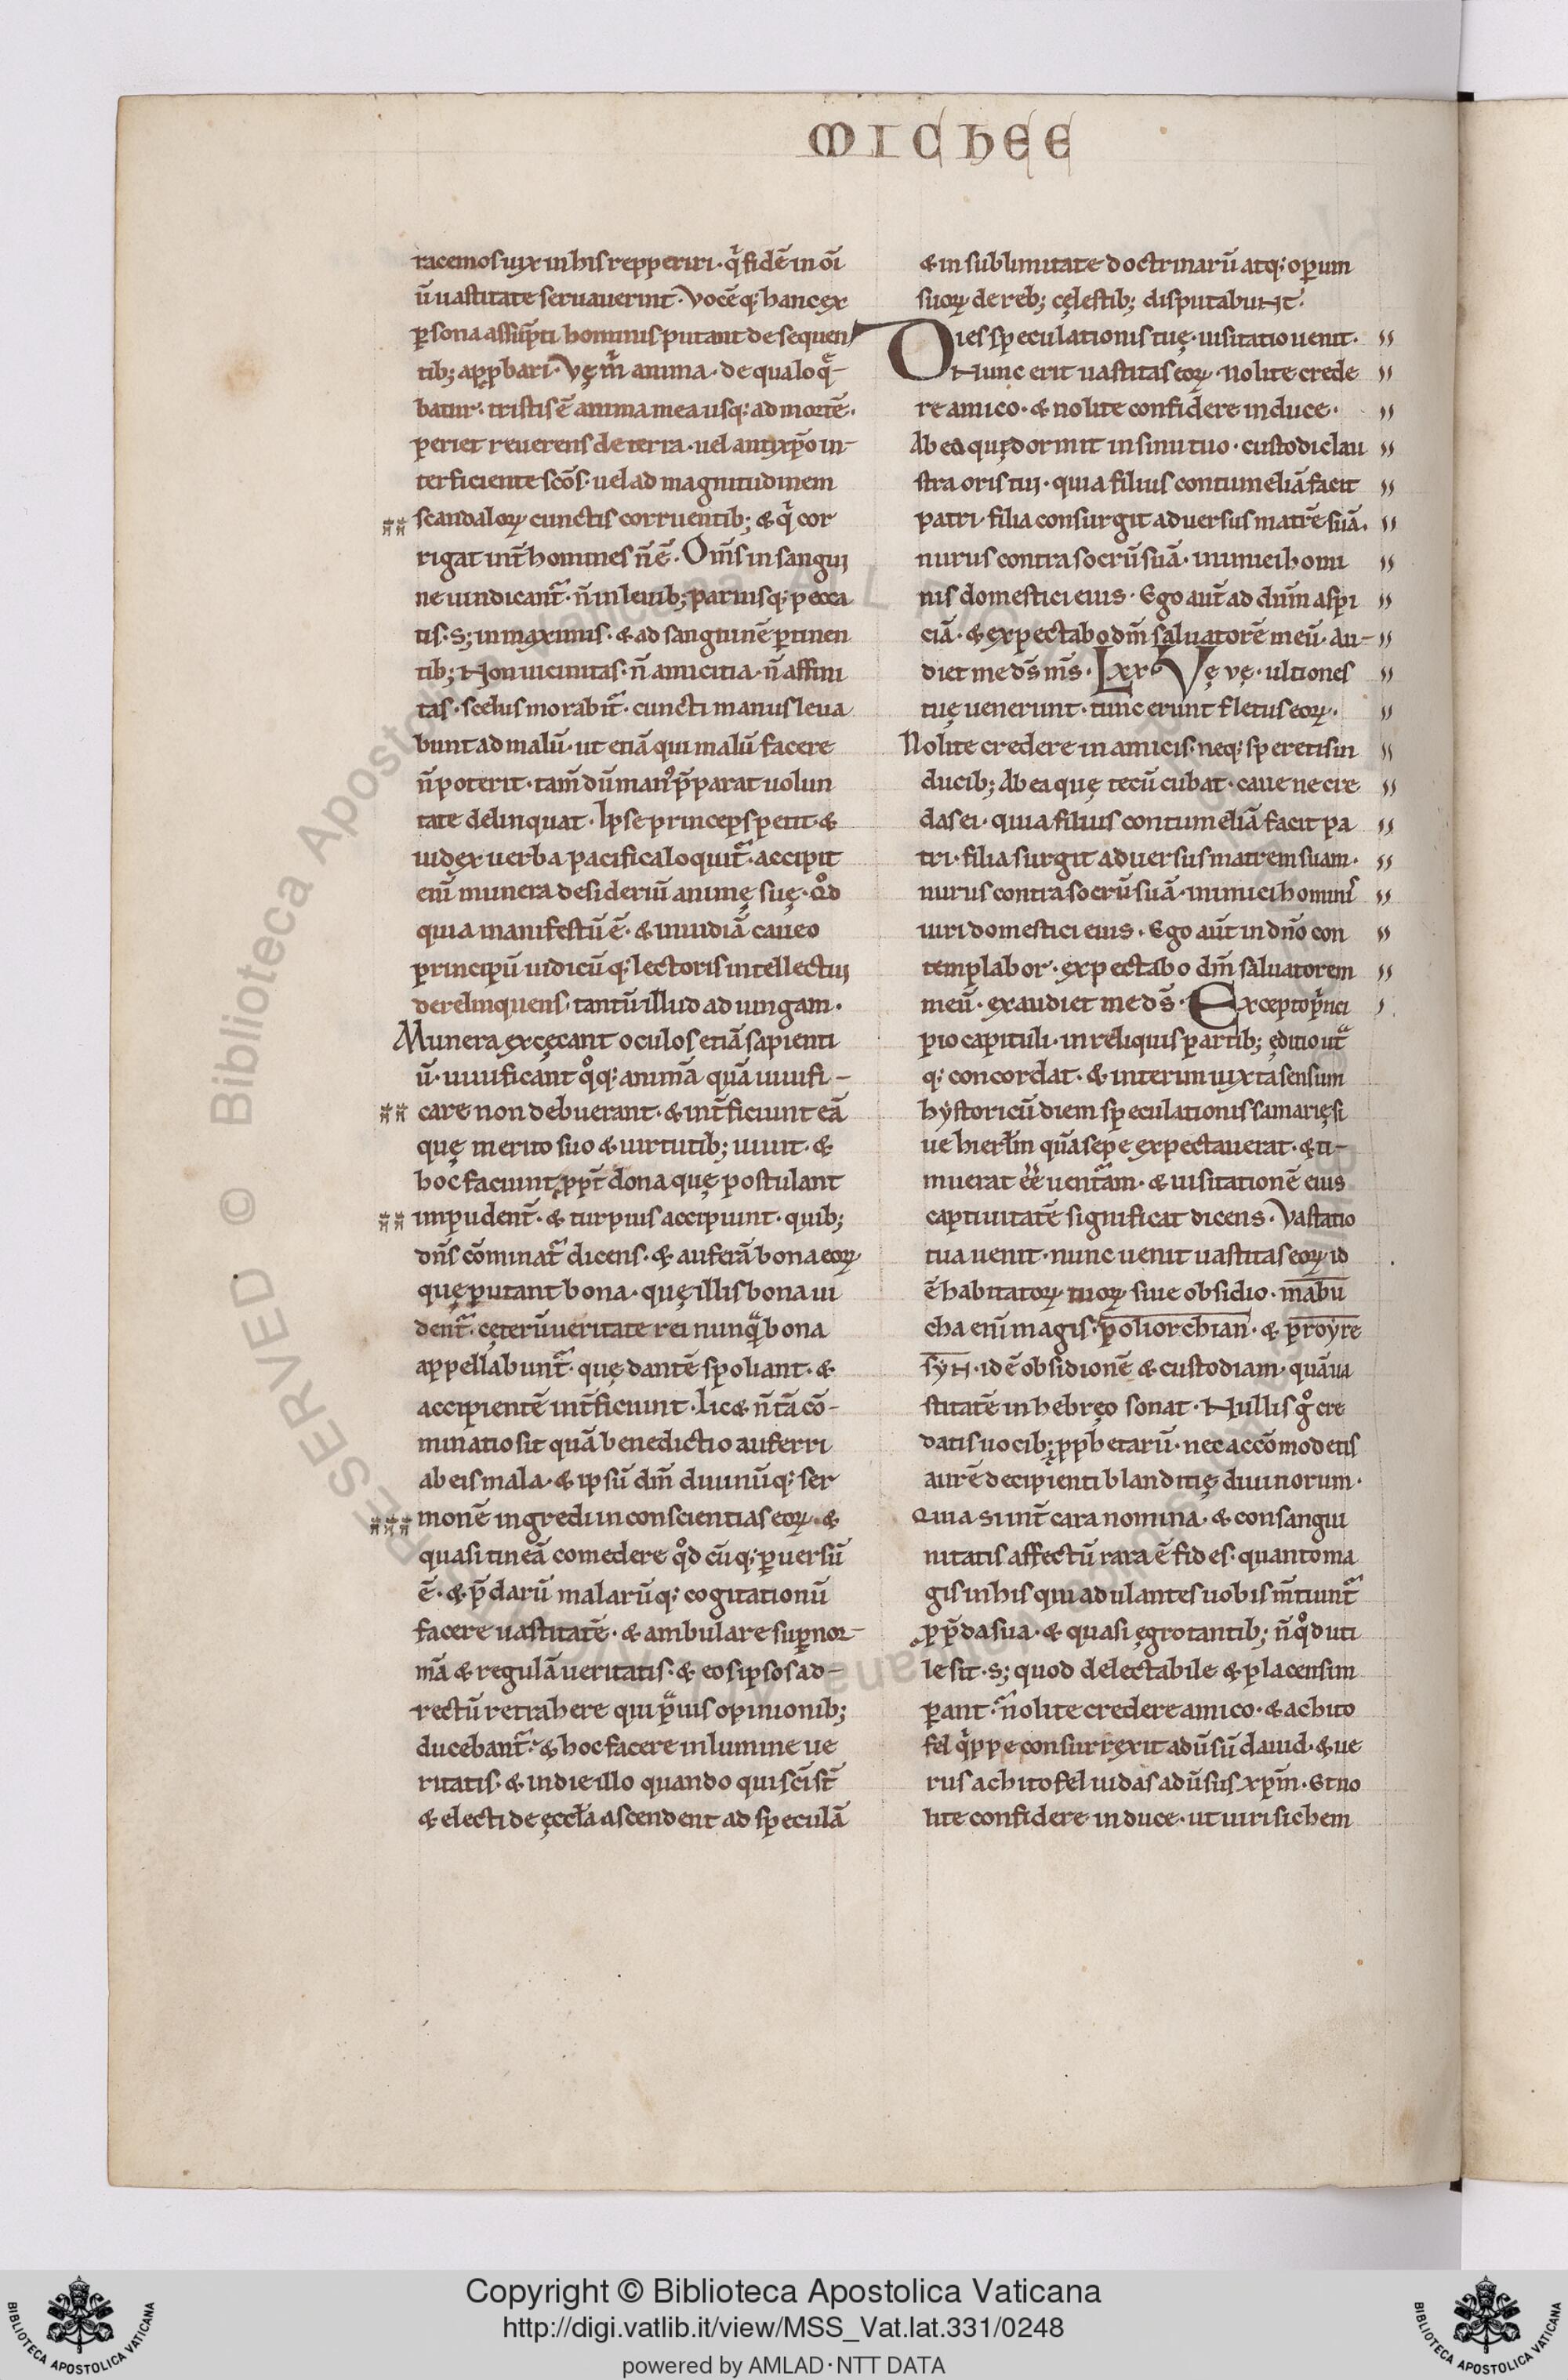 MICHEE
racemos uix in his repperiri· q̇ fidē in oī
ū uastitate seruauerint· Vocēq; hanc ex
ꝑsona assūpti hominis putant de sequen
tib; apꝓbari· Vę m̄ anima· de qua loq̄
batur· tristis ē anima mea usq; ad mortē·
periet reuerens de terra· uel antixp̄o in-
terficiente scōs· uel ad magnitudinem
scandaloꝝ cunctis corruentib; & q̇ cor
rigat int̄ homines n̄ ē· Om̄s in sangui
ne iudicant᷑· n̄ in leuib; paruisq; pecca
tis· s; in maximis· & ad sanguinē ꝑtinen
tib; Non uicinitas· n̄ amicitia· n̄ affini
tas· scelus morabit᷑· cuncti manus leua
bunt ad malū· ut etiā qui malū facere
n̄ poterit· tam̄ dū man᷒ p̄parat uolun
tate delinquat· Ipse princeps petit· &
iudex uerba pacifica loquit᷑· accipit
enī munera desideriū animę suę· qd̊
quia manifestū ē· & inuidiā caueo
principū iudicūq; lectoris intellectui
derelinquens· tantū illud adiungam·
Munera excęcant oculos etiā sapienti
ū· uiuificant qq̊; animā quā uiuifi-
care non debuerant· & int̄ficiunt eā
quę merito suo & uirtutib; uiuit· &
hoc faciunt ꝓpt̄ dona quę postulant
impudent̄· & turpius accipiunt· quib;
dn̄s cōminat᷑ dicens· & auferā bona eoꝝ
quę putant bona· quę illis bona ui
dent᷑· cęterū ueritate rei nunq̄ bona
appellabunt᷑· quę dantē spoliant· &
accipientē int̄ficiunt· lic& n̄ tā cō-
minatio sit quā benedictio auferri
ab eis mala· & ipsū dm̄ diuinūq; ser
monē ingredi in conscientias eoꝝ· &
quasi tineā comedere qd̊cūq; ꝑuersū
ē· & p̄darū malarūq; cogitationū
facere uastitatē· & ambulare suꝑ nor-
mā & regulā ueritatis· & eos ipsos ad-
rectū retrahere qui p̄uis opinionib;
ducebant᷑· & hoc facere in lumine ue
ritatis· & in die illo quando qui sc̄i st̄
& electi de ęccła ascendent ad speculā
& in sublimitate doctrinarū atq; oꝑum
suoꝝ de reb; cęlestib; disputabunt·
Dies speculationis tuę· uisitatio uenit·
Nunc erit uastitas eoꝝ· Nolite crede
re amico· & nolite confidere in duce·
Ab ea quę dormit in sinu tuo· custodi clau
stra oris tui· quia filius contumeliā facit
patri· filia consurgit aduersus matrē suā·
nurus contra socrū suā· inimici homi
nis domestici eius· Ego aut̄ ad dūm aspi
ciā· & expectabo dm̄ saluatorē meū· Au-
diet me ds̄ ms̄· Lxx· Vę vę· ultiones
tuę uenerunt· tunc erunt fletus eoꝝ·
Nolite credere in amicis· neq; speretis in
ducib; Ab ea quę tecū cubat· caue ne cre
das ei· quia filius contumeliā facit pa
tri· filia surgit aduersus matrem suam·
nurus contra socrū suā· inimici homini᷒
uiri domestici eius· Ego aūt in dn̄o con
templabor· expectabo dm̄ saluatorem
meū· exaudiet me ds̄· Excepto p̄nci
pio capituli· in reliquis partib; ęditio ut̄
q; concordat· & interim iuxta sensum
hystoricū diem speculationis samarię si
ue hierłm quā sepe expectauerat· & ti-
muerat ee᷑ uent᷑am· & uisitationē eius
captiuitatē significat dicens· Vastatio
tua uenit· nunc uenit uastitas eoꝝ id
ē habitatoꝝ tuoꝝ siue obsidio· mabu
cha enī magis· poliorchian· & proyre
syn· id ē obsidionē & custodiam· quā ua
stitatē in hebręo sonat· Nullis g̊ cre
datis uocib; ꝓphetarū· nec accōmodetis
aurē decipienti blanditię diuinorum·
Quia s̄ int̄ cara nomina· & consangui
nitatis affectū rara ē fides· quanto ma
gis in his qui adulantes uobis mt̄iunt᷑
ꝓ p̄da sua· & quasi ęgrotantib; n̄ qd̊ uti
le sit· s; quod delectabile & placens im
ꝑant· nolite credere amico· & achito
fel q̇ppe consurrexit adūsū dauid· & ue
rus achitofel iudas adūsus xp̄m· Et no
lite confidere in duce· ut uiri sichem
© Biblioteca Apostolica Vaticana
Copyright © Biblioteca Apostolica Vaticana
http://digi.vatlib.it/view/MSS_Vat.lat.331/0248
powered by AMLAD·NTT DATA
BIBLIOTECA APOSTOLICA VATICANA
BIBLIOTECA APOSTOLICA VATICANA